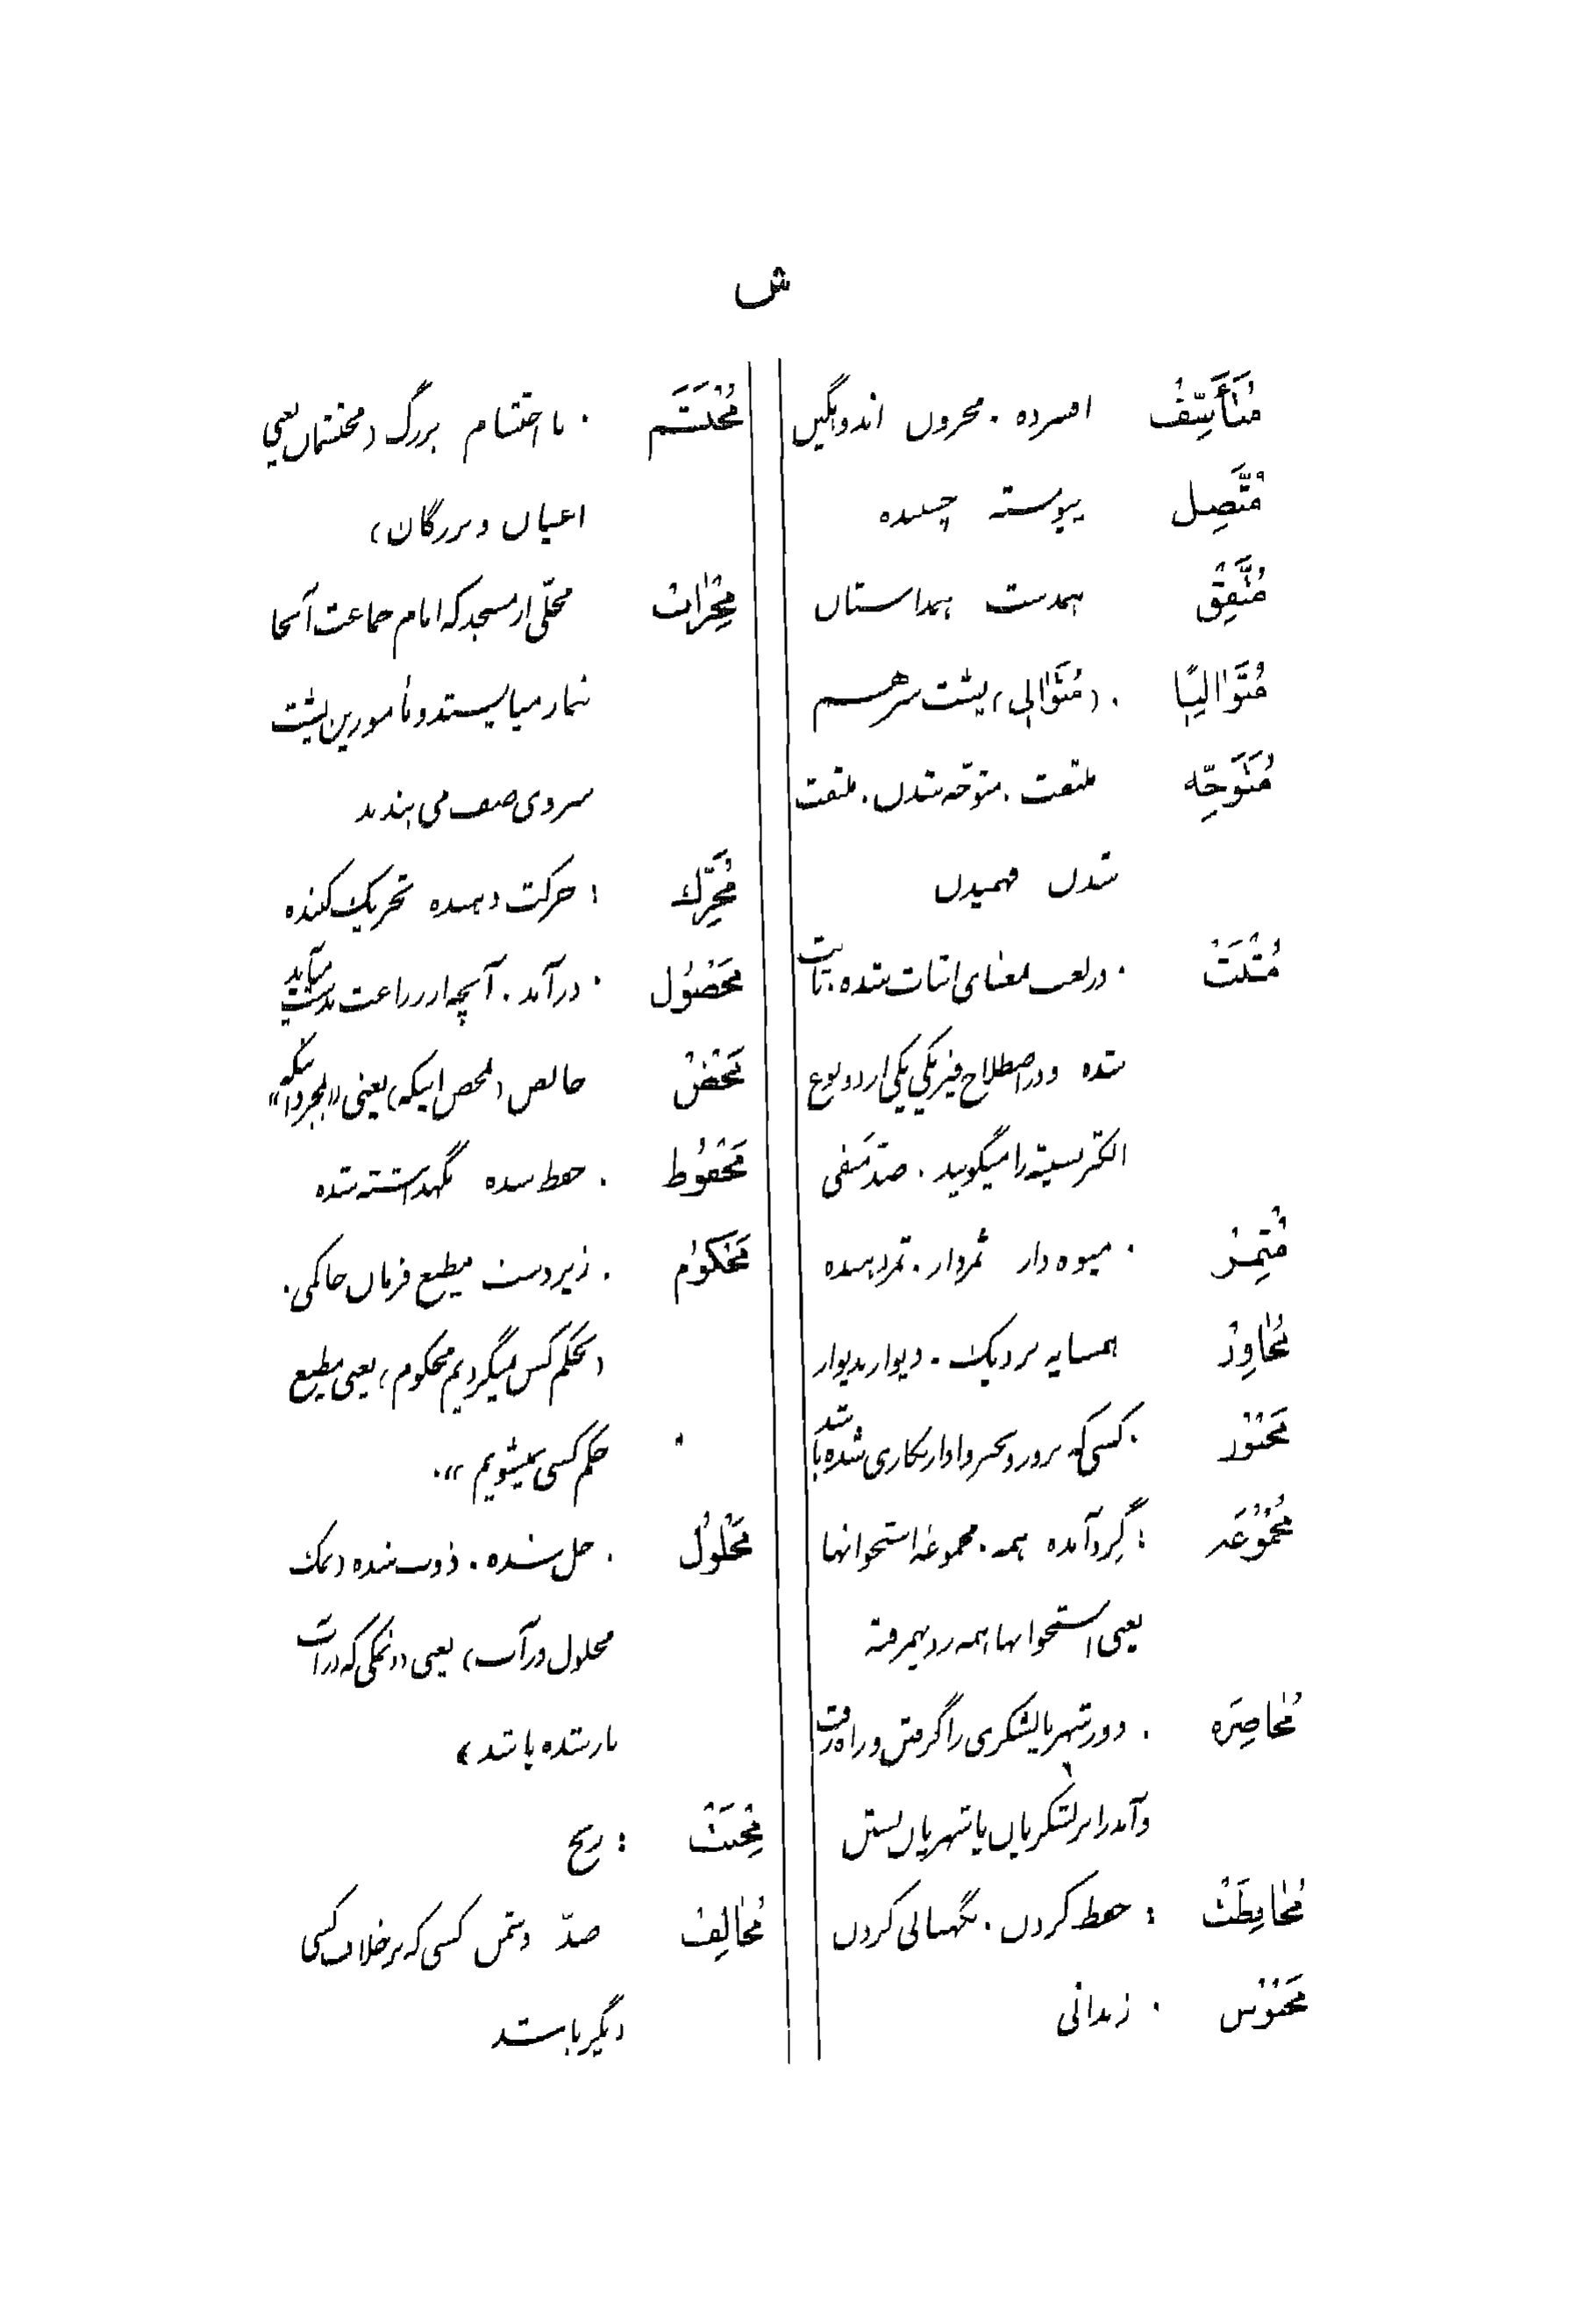 ش
مُتَأَسِّفْ افسرده . محزون اندوهگین
مُتَّصِل پیوسته چسبیده
مُتَّفِقْ همدست همداستان
مُتَوٰالِیًا . (مُتَوٰالِی) پشت سر هم
مُتَوَجِّه ملتفت . متوجّه شدن . ملتفت
شدن فهمیدن
مُثْبَتْ . در لغت بمعنای اثبات شده . ثابت
شده و در اصطلاح فیزیکی یکی از دو نوع
الکتریسیته را میگویند . ضدّ مَنفی
مُثمِرْ . میوه دار ثمردار . ثمر دهنده
مُجٰاوِرْ همسایه نزدیک . دیوار بدیوار
مَجْبُور . کسی که بزور و بجبر وادار بکاری شده باشد
مَجْمُوعَه : گِردآمده همه . مجموعهٔ استخوانها
یعنی استخوانها همه رویهمرفته
مُحٰاصِرَه . دور شهر یا لشکری را گرفتن و راه رفت
و آمد را بر لشکریان یا شهریان بستن
مُحٰافِظَتْ : حفظ کردن . نگهبانی کردن
مَحْبُوس . زندانی
مُحْتَشَم . با احتشام بزرگ (محتشمان یعنی
اعیان و بزرگان)
مِحْرٰابْ محلّی از مسجد که امام جماعت آنجا
نماز میایستد و مأمومین پشت
سر وی صف می بندند
مُحَرِّک : حرکت دهنده تحریک کننده
مَحْصُول . درآمد . آنچه از زراعت بدست میآید
مَحْضْ خالص (بمحض اینکه) یعنی «بمجرد اینکه»
مَحْفُوظ . حفظ شده نگهداشته شده
مَحْکُوم . زیردست مطیع فرمان حاکمی .
(بحکم کس نمیگردیم محکوم) یعنی مطیع
حکم کسی نمیشویم » .
مَحْلُولْ . حل شده . ذوب شده (نمک
محلول در آب) یعنی «نمکی که در آب
باز شده باشد»
مِحْنَتْ : رنج
مُخٰالِفْ ضدّ دشمن کسی که بر خلاف کسی
دیگر باشد